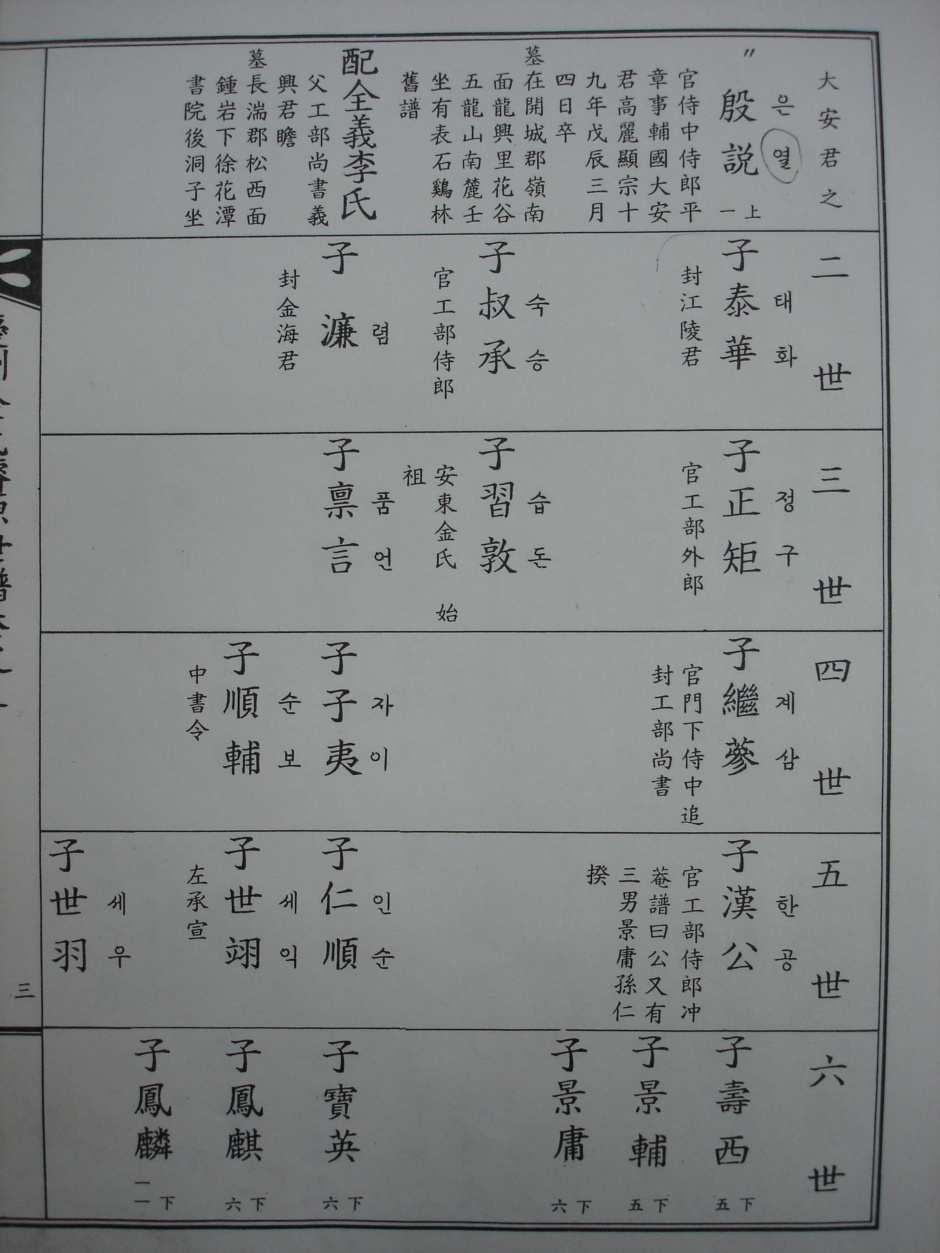 大安君之
은열
〃殷説
一上
官侍中侍郎平
章事輔國大安
君高麗顯宗十
九年戊辰三月
四日卒
墓在開城郡嶺南
面龍興里花谷
五龍山南麓壬
坐有表石鷄林
舊譜
配全義李氏
父工部尚書義
興君瞻
墓長湍郡松西面
鍾岩下徐花潭
書院後洞子坐
二世
태화
子泰華
封江陵君
숙승
子叔承
官工部侍郎
렴
子濂
封金海君
三世
정구
子正矩
官工部外郎
습돈
子習敦
安東金氏 始
祖
품언
子禀言
四世
계삼
子繼蔘
官門下侍中追
封工部尚書
자이
子子夷
순보
子順輔
中書令
五世
한공
子漢公
官工部侍郎冲
菴譜曰公又有
三男景庸孫仁
揆
인순
子仁順
세익
子世翊
左承宣
세우
子世羽
六世
子壽西
五下
子景輔
五下
子景庸
六下
子寶英
六下
子鳳麒
六下
子鳳麟
一一下
三